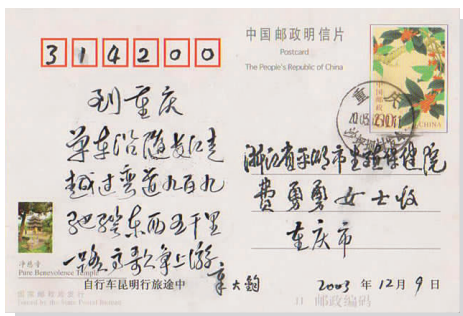 中国邮政明信片
Postcard
The People's Republic of China
314200
到重庆
单车沿随长江走
越过弯道九百九
驰骋东西五千里
一路高歌争上游
章大钧
浙江省平湖市生殖保健院
费勇勇女士收
重庆市
中国邮政
CHINA
净慈寺
Pure Benevolence Temple
自行车昆明行旅途中
2003年12月9日
邮政编码